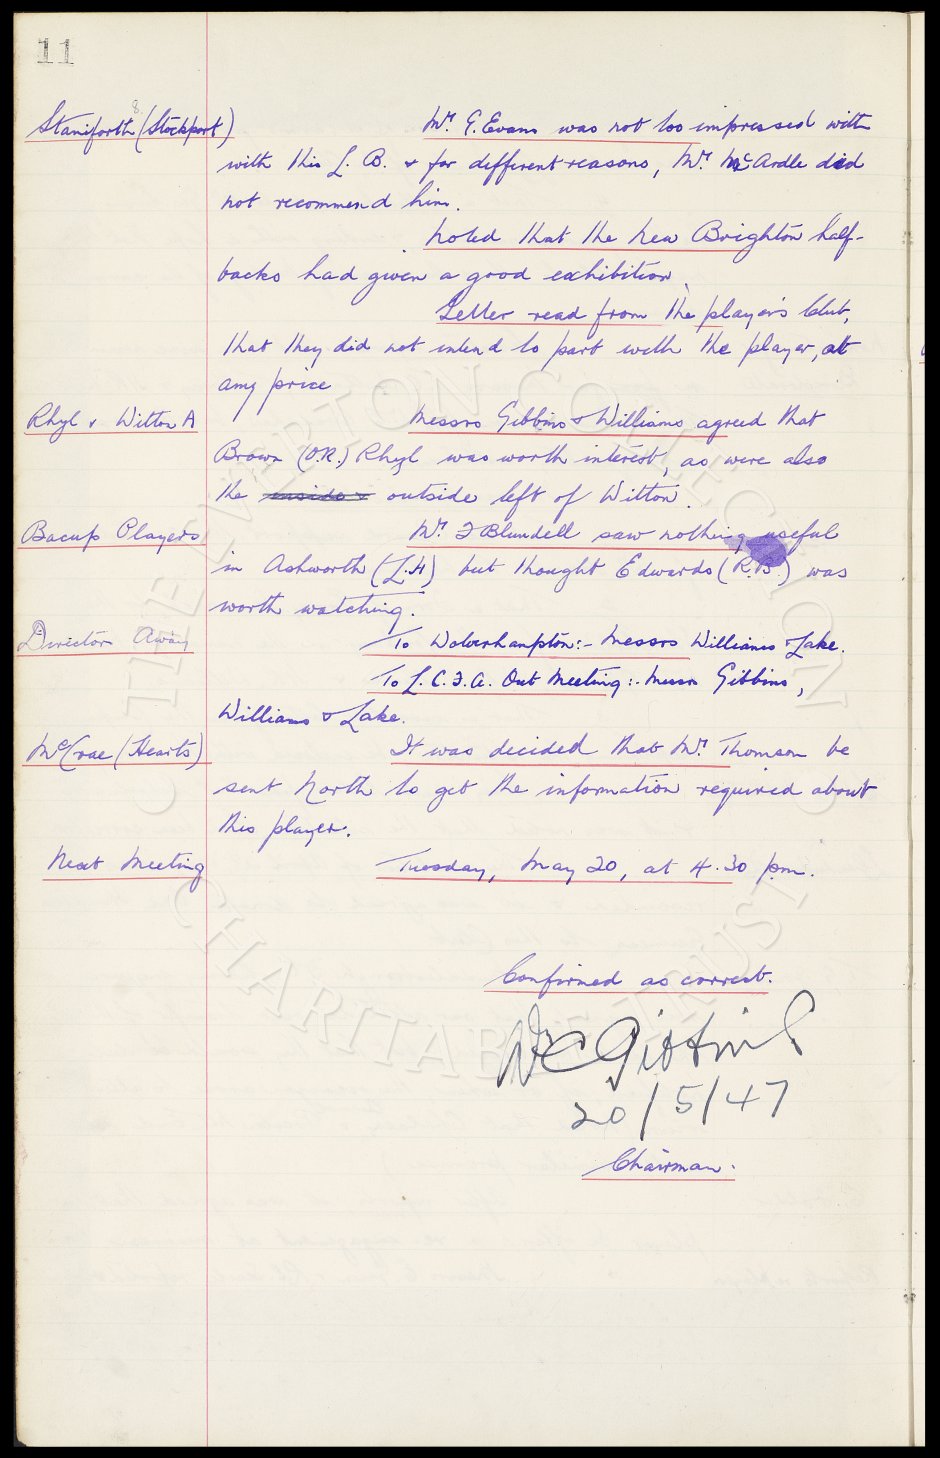 11
Staniforth (Stockport) Mr. G. Evans was not too impressed with
with this L. B. & for different reasons, Mr. McArdle did
not recommend him.
Noted that the New Brighton half-
backs had given a good exhibition.
Letter read from the player's Club,
that they did not intend to part with the player, at
any price
Rhyl v Witton A Messrs Gibbins & Williams agreed that
Brown (O.R.) Rhyl was worth interest, as were also
the inside & outside left of Witton.
Bacup Players Mr. F Blundell saw nothing useful
in Ashworth (L.H) but thought Edwards (R.B.) was
worth watching.
Director Away To Wolverhampton:- Messrs Williams & Lake.
To L.C.F.A. Out Meeting:- Messrs Gibbins,
Williams & Lake.
McCrae (Hearts) It was decided that Mr. Thomson be
sent North to get the information required about
this player.
Next Meeting Tuesday, May 20, at 4.30 pm.
Confirmed as correct.
W C Gibbins
20/5/47
Chairman.
THE EVERTON COLLECTION
CHARITABLE TRUST